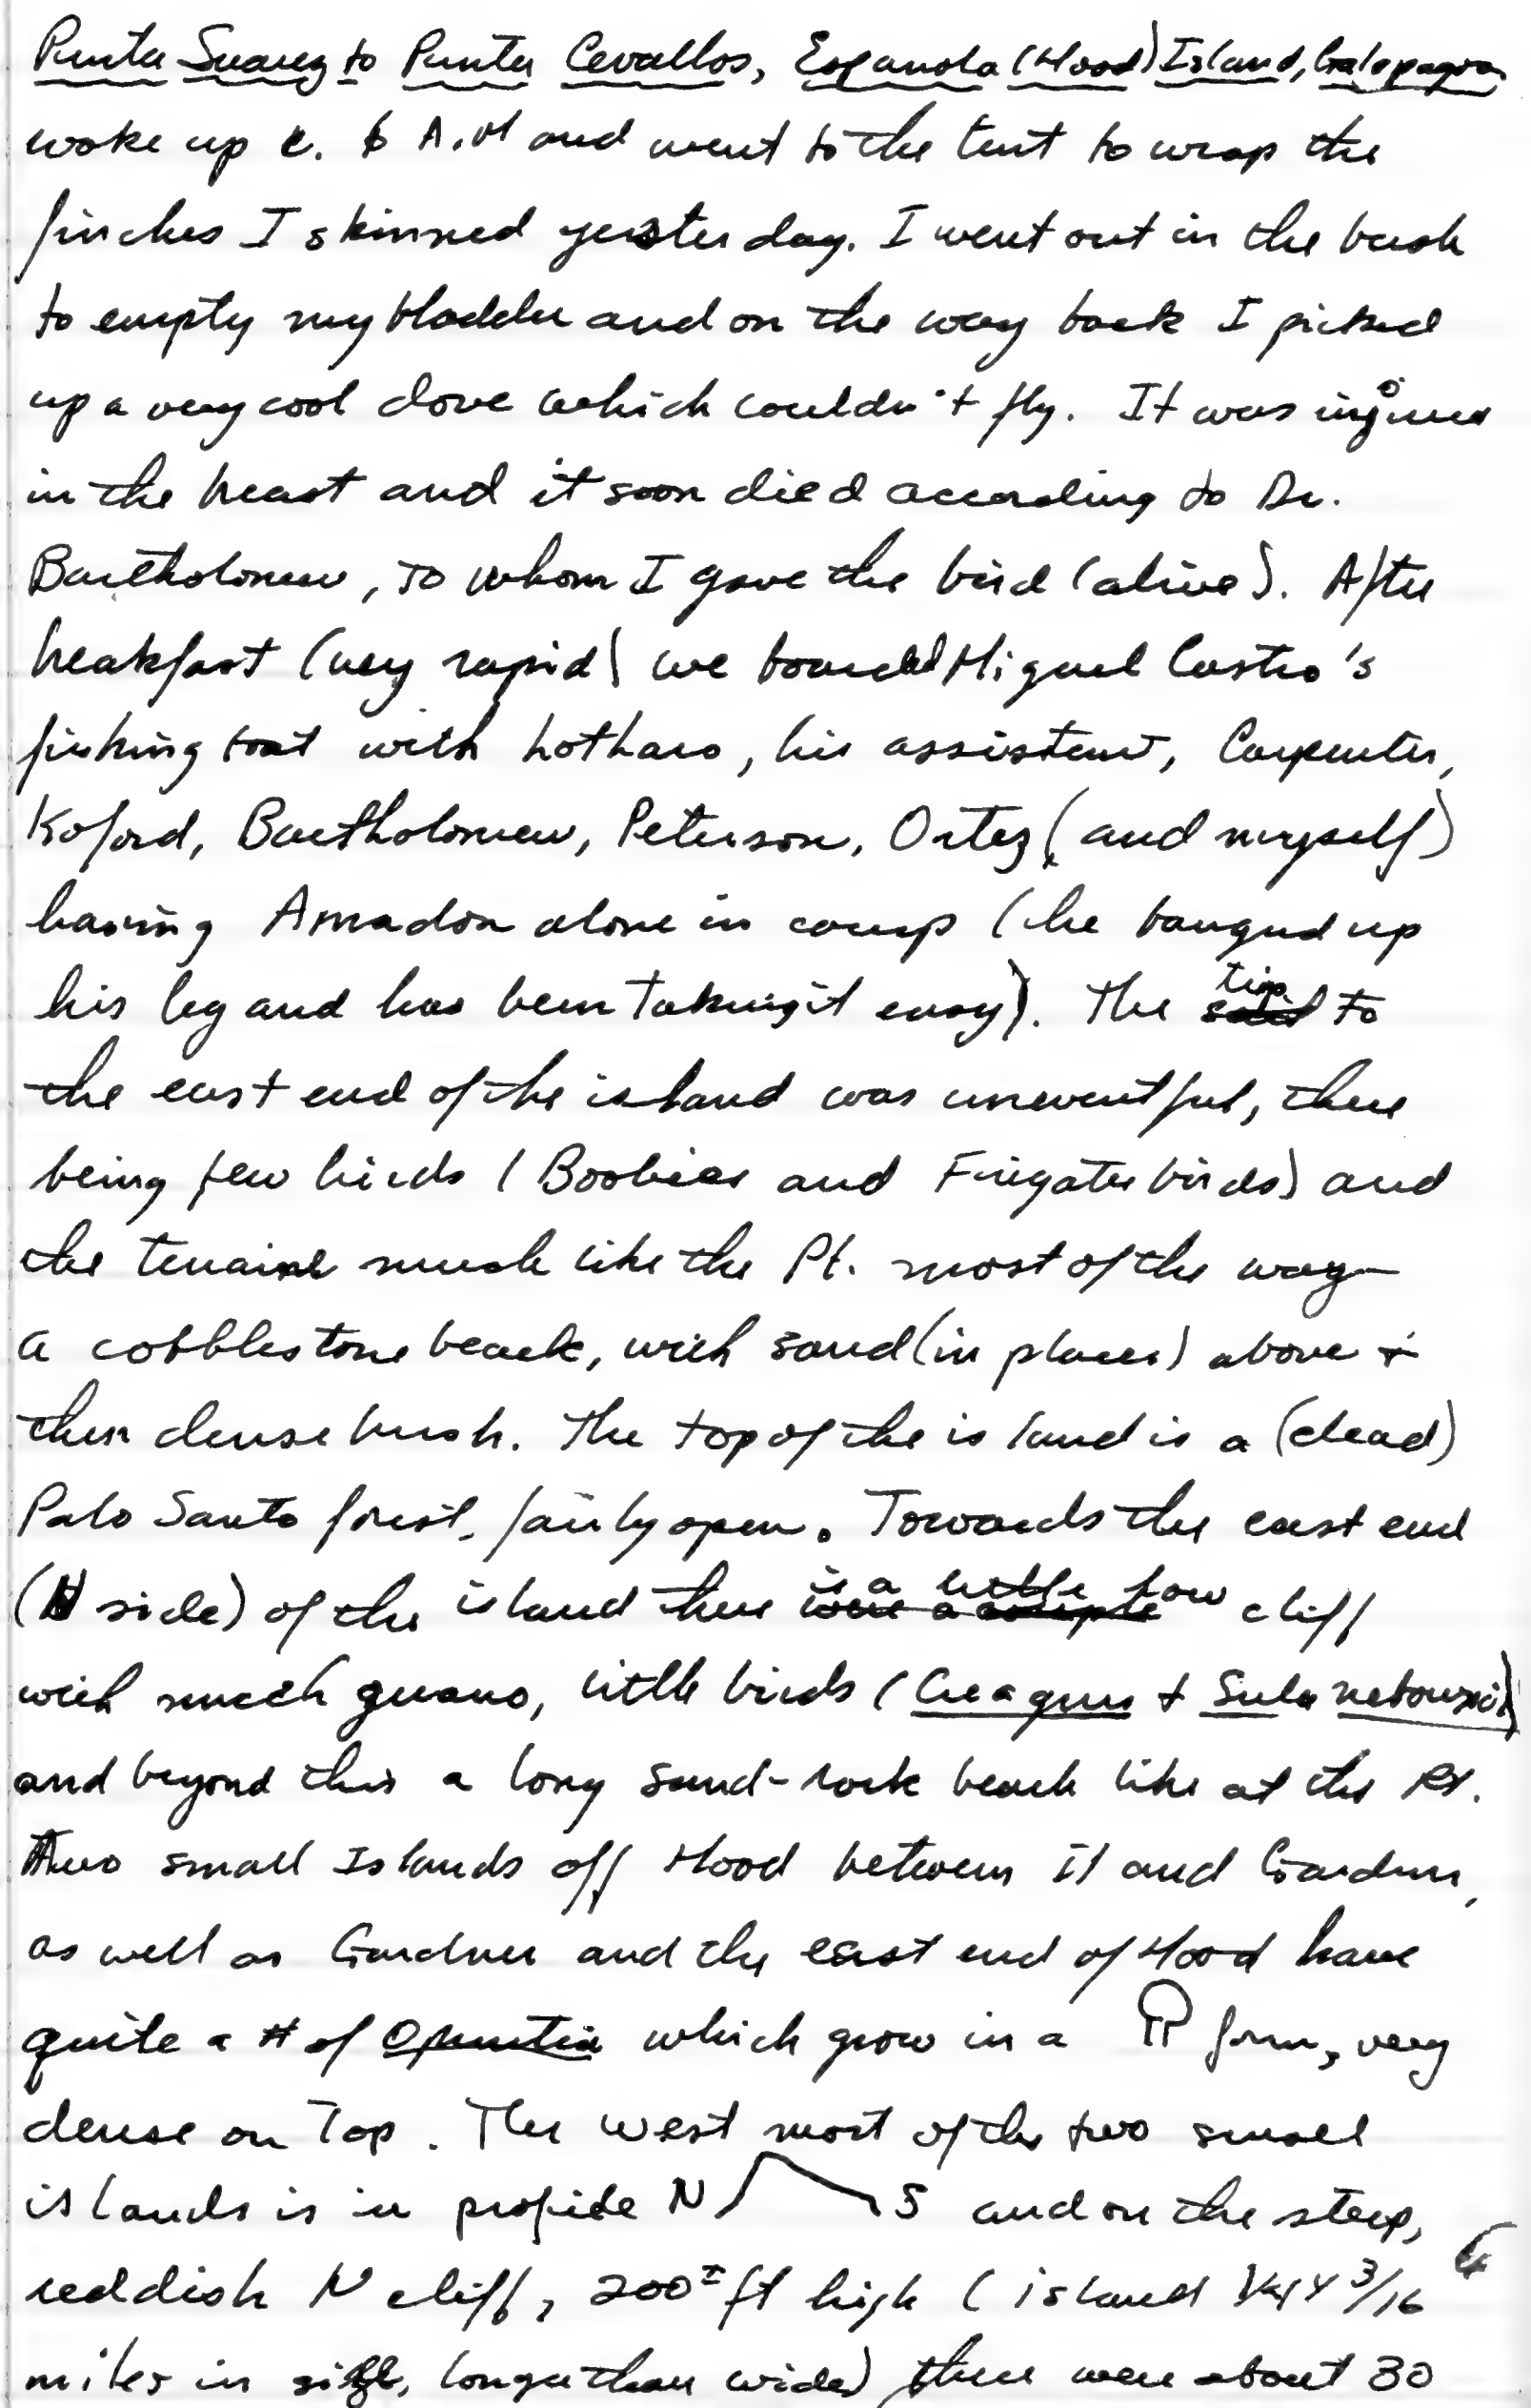 Punta Suarez to Punta Cevallos, Espanola (Hood) Island, Galapagos
woke up c. 6 A.M and went to the tent to wrap the
finches I skinned yesterday. I went out in the bush
to empty my bladder and on the way back I picked
up a very cool dove which couldn't fly. It was injured
in the heart and it soon died according to Dr.
Bartholomew, to whom I gave the bird (alive). After
breakfast (very rapid) we boarded Miguel Castro's
fishing boat with Lotharo, his assistant, Carpenter,
Koford, Bartholomew, Peterson, Ortez (and myself)
leaving Amadon alone in camp (he banged up
his leg and has been taking it easy). The trip to
the east end of the island was uneventful, there
being few birds (Boobies and Frigate birds) and
the terrain much like the Pt. most of the way—
a cobblestone beach, with sand (in places) above +
then dense brush. The top of the island is a (dead)
Palo Santo forest, fairly open. Towards the east end
(N side) of the island there is a little low cliff
with much guano, little birds (Creagrus + Sula nebouxii)
and beyond this a long sand-rock beach like at the Pt.
Two small Islands off Hood between it and Gardner,
as well as Gardner and the east end of Hood have
quite a # of Opuntia which grow in a form, very
dense on top. The west most of the two small
islands is in profile N S and on the steep,
reddish N cliff, 200± ft high (island 3/16
miles in size, longer than wide) there were about 30